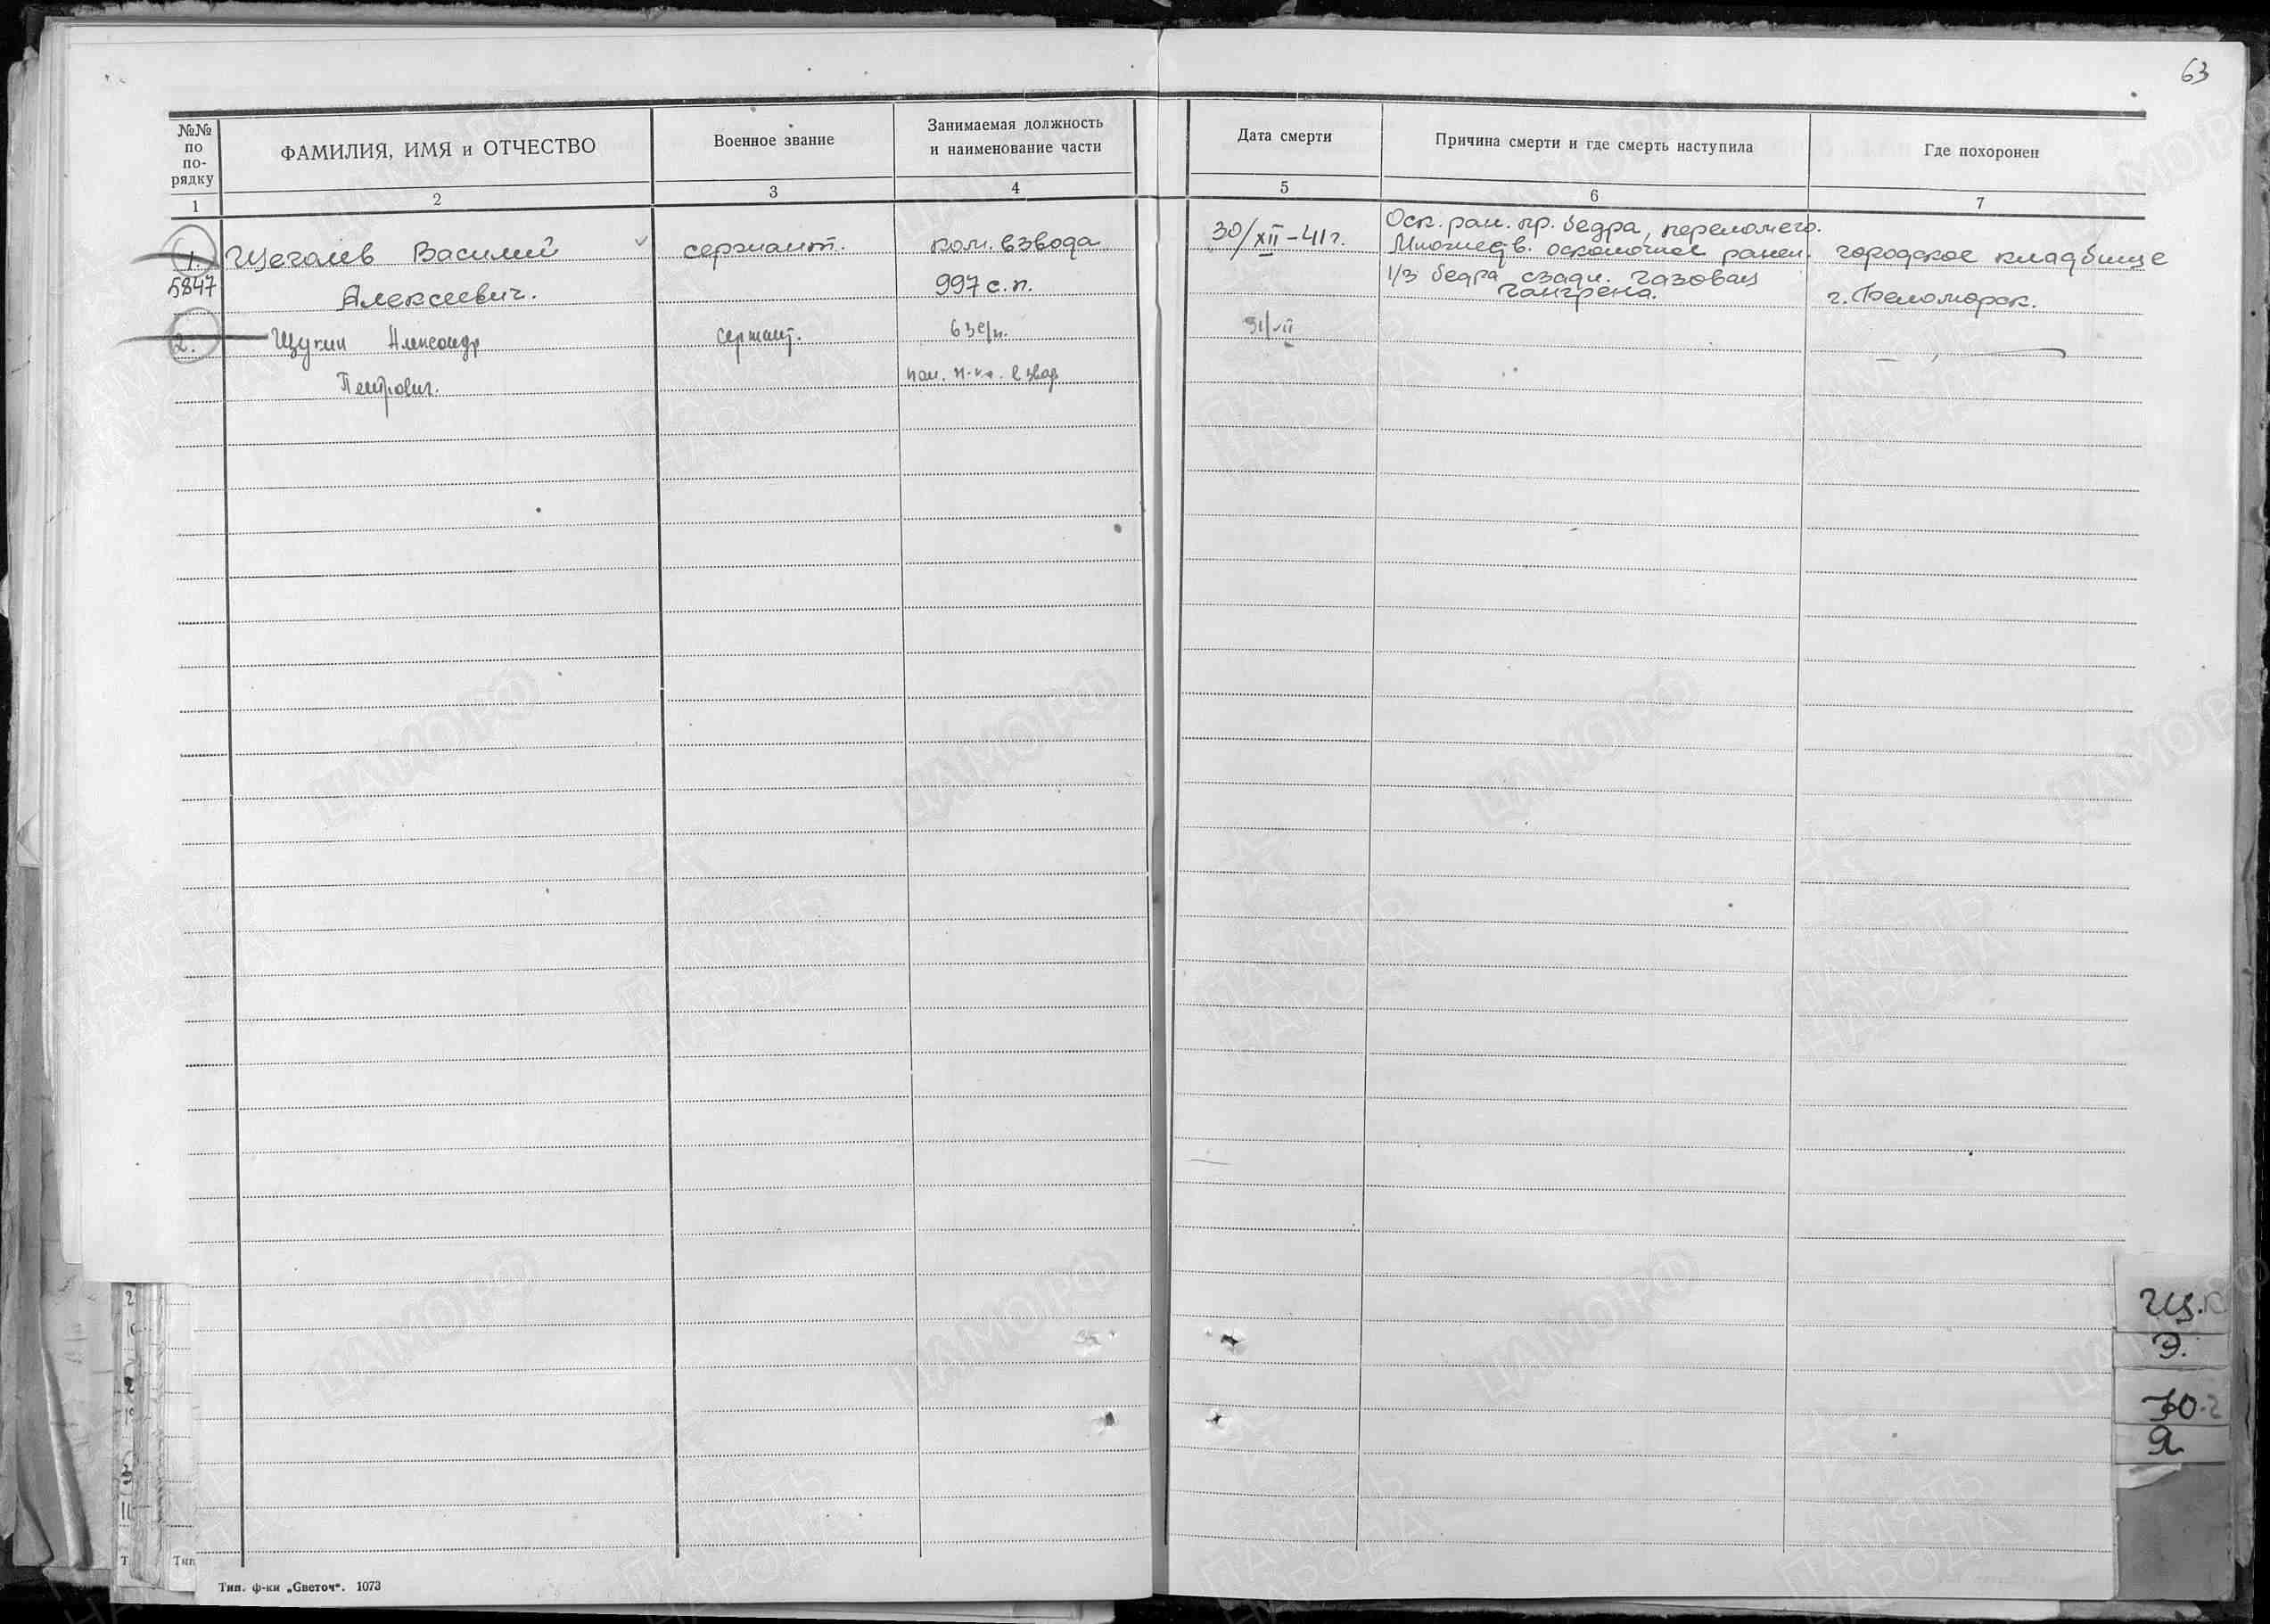 63
№№ по по- рядку
ФАМИЛИЯ, ИМЯ и ОТЧЕСТВО
Военное звание
Занимаемая должность
и наименование части
Дата смерти
Причина смерти и где смерть наступила
Где похоронен
1 2 3 4 5 6 7
Оск. ран. пр. бедра,
1. Щеголев Василий сержант. ком. взвода 30/XII-41г. Множеств. осколочное ранен. городское кладбище
5847 Алексеевич. 997 с.п. 1/3 бедра сзади. Газовая
гангрена. г. Беломорск.
2. Щукин Александр сержант. 63 с/п. 31/XII
Петрович. взвод
Щ.
Э.
Ю.
Я
Тип. ф-ки „Светоч“. 1073
ПАМЯТЬ НАРОДА
ЦАМО РФ